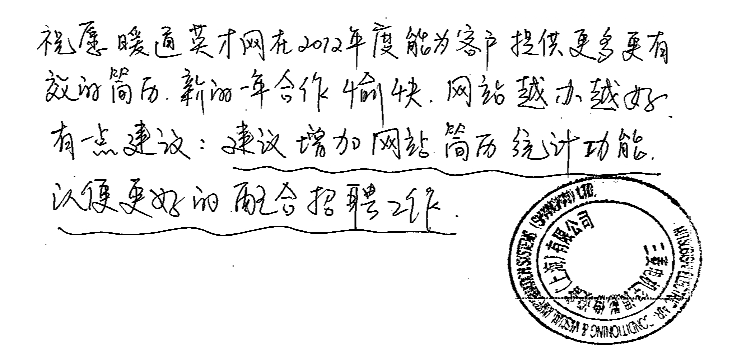 祝愿暖通英才网在2012年度能为客户提供更多更有
效的简历.新的一年合作愉快.网站越办越好.
有一点建议：建议增加网站简历统计功能.
以便更好的配合招聘工作.
MITSUBISHI ELECTRIC AIR-CONDITIONING & VISUAL INFORMATION SYSTEMS (SHANGHAI) LTD.
三菱电机空调影像设备（上海）有限公司